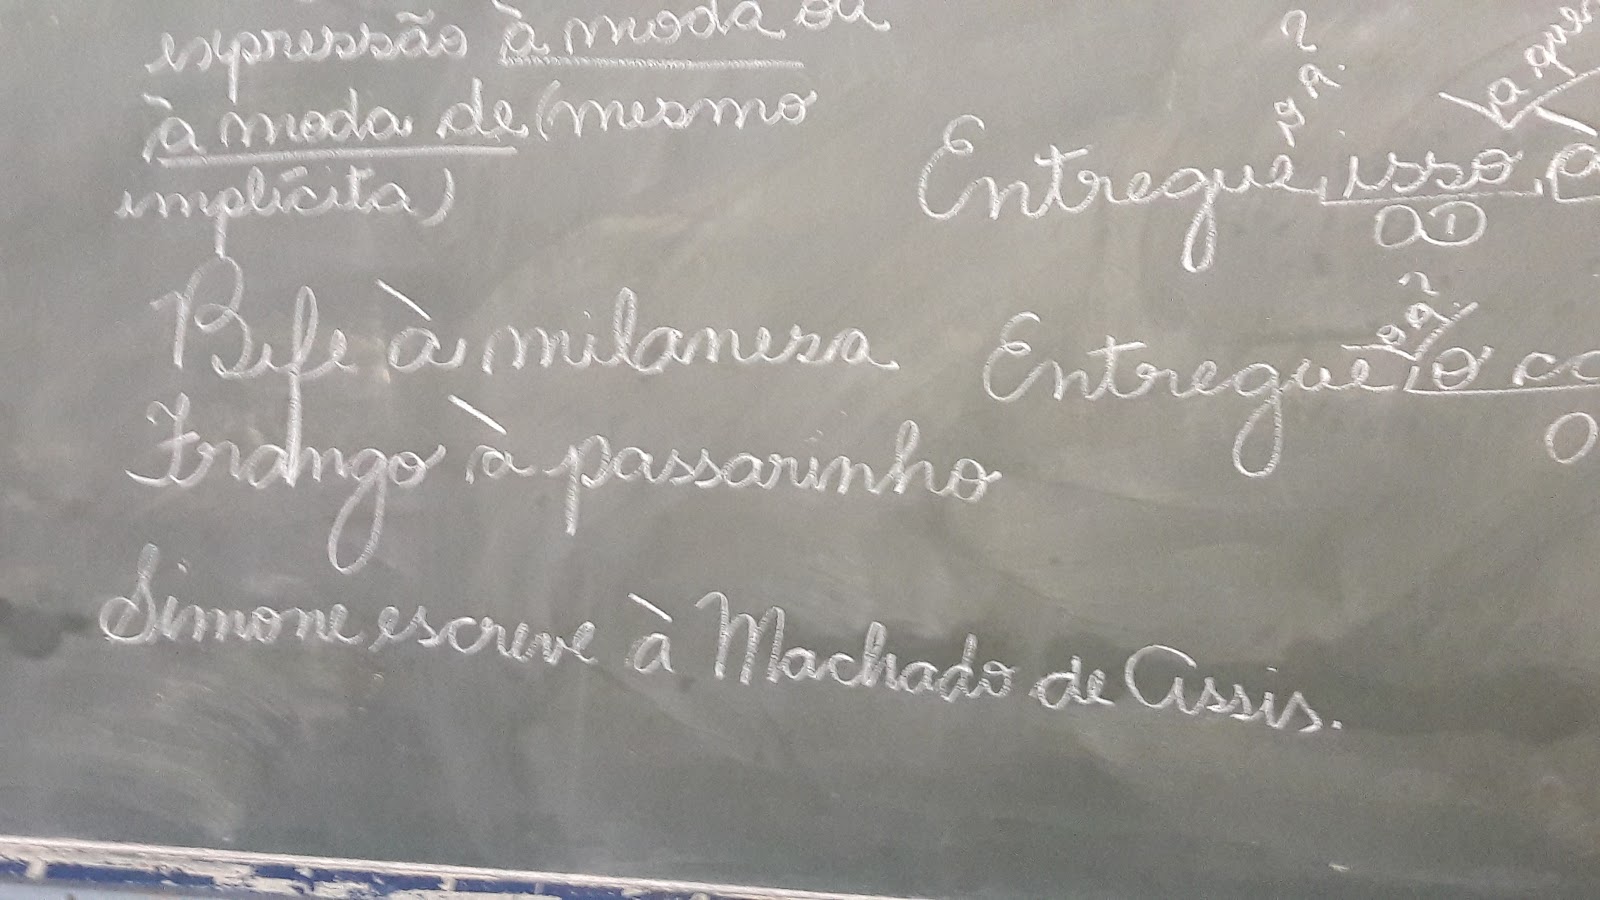 expressão à moda ou
à moda de (mesmo
implícita)
Bife à milanesa
Frango à passarinho
Simone escreve à Machado de Assis.
Entregue isso a
OD
Entregue o